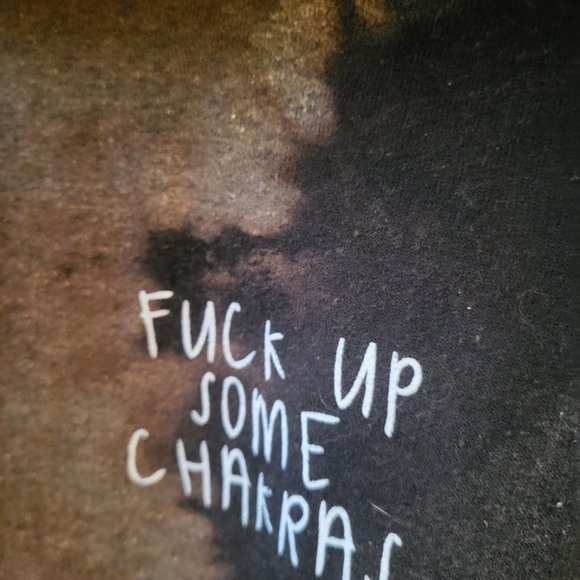 FUCK UP
SOME
CHAKRAS